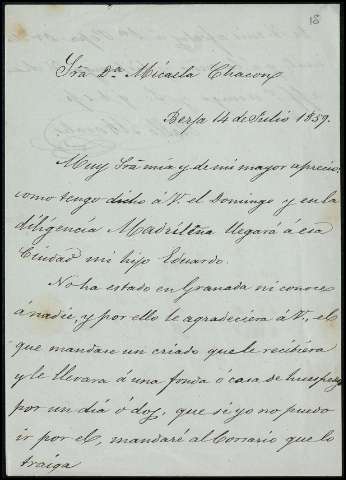 Sra Da. Micaela Chacon
Berja 14 de Julio 1859.
Muy Sra mia y de mi mayor aprecio:
como tengo dicho á V. el Domingo y en la
diligencia Madrileña llegará á esa
Ciudad mi hijo Eduardo.
No ha estado en Granada ni conoce
á nadie, y por ello le agradeciera á V., el
que mandase un criado que le recibiera
y le llevara á una fonda ó casa de huespedes
por un dia ó dos, que si yo no puedo
ir por el, mandaré al Corsario que lo
traiga